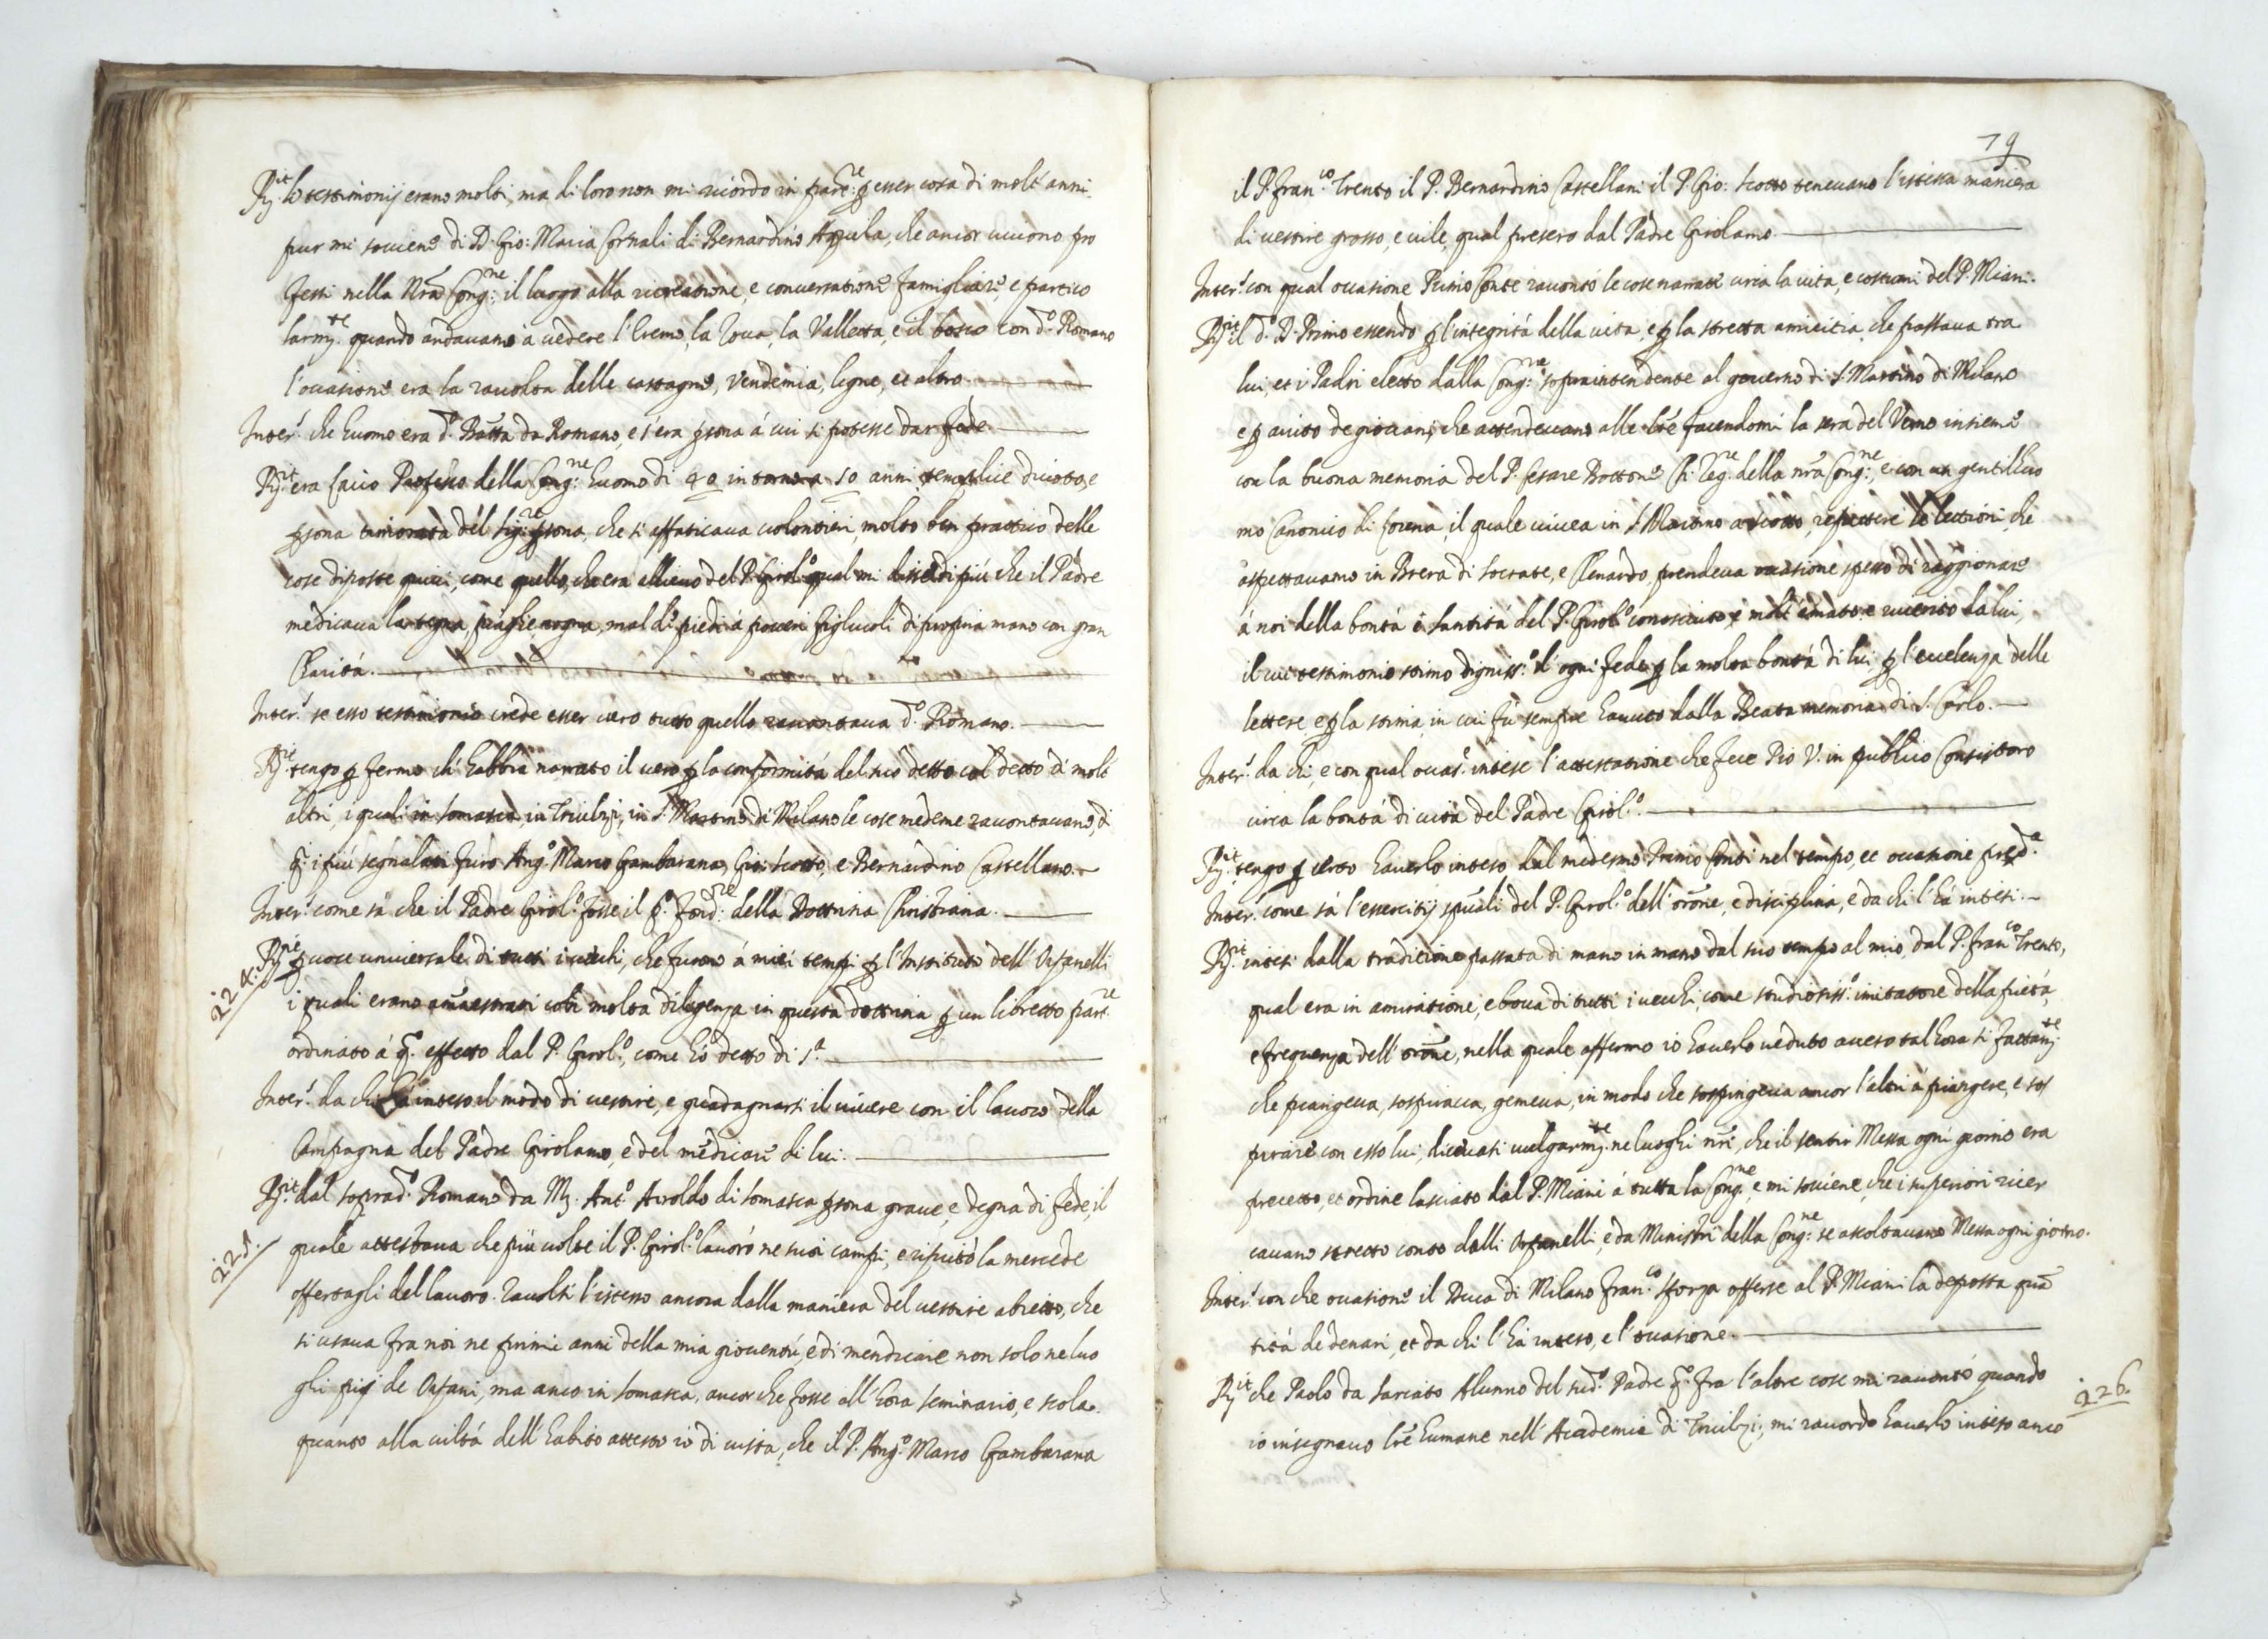 R.it li testimonij erano molti, ma di loro non mi ricordo in part.re p esser cosa di molt'anni.
pur mi souiene di D. Gio: Maria Cortiali di Bernardino Aquila, che ancor uiuono pro
fessi nella Nrã Cong.ne il luogo alla ricreatione, e conuersatione famigliare, e partico
larm.te quando andauamo à uedere l'Eremo, la Roua, la Valletta, e il bosco con d.o Romano
l'ocasione era la racolta delle castagne, Vendemia, legne, et altro.
Inter.t che huomo era d.o Batta da Romano, e s'era psona á cui si potesse dar fede
R.it era laico Professo della Cong.ne huomo di 40 in torno a 50 anni semplice diuoto, e
psona timorata del Sig.re psona, che si affaticaua uolontieri, molto ben prattico delle
cose disposte quiui, come quello, che era allieuo del P. Girol.o qual mi disse di piú che il Padre
medicaua la tegna, piaghe, rogna, mal di piedi á poueri figliuoli di propria mano con gran
Charitá.
Inter.t se esso testimonio crede esser uero tutto quello racontaua d.o Romano.
R.it tengo p fermo ch'habbia narrato il uero p la conformitá del suo detto col detto di molt'
altri, i quali in Somasca, in Triulzi, in S. Martino di Milano le cose medeme racontauano, di
q. i piú segnalati furo Ang.o Marco Gambarana, Gio: Scotto, e Bernardino Castellano.
Inter.t come sá che il Padre Girol.o fosse il p.o fond.re della Dottrina Christiana.
224. R.it p uoce uniuersale di tutti i uechi, che furono á miei tempi p l'Instituto dell'Orfanelli
i quali erano amaestrati con molta diligenza in questa dottrina p un libretto part.re
ordinato á q. effetto dal P. Girol.o, come hó detto di s.a
Inter.t da chi há inteso il modo di uestire, e guadagnarsi il uiuere con il lauoro della
Campagna del Padre Girolamo, e del medicare di lui.
225. R.it dal soprad.o Romano da M. Ant.o Airoldo di Somasca psona graue, e degna di fede, il
quale attestaua che piú uolte il P. Girol.o lauoró ne suoi campi, e rifiutó la mercede
offertagli del lauoro. Racolsi l'istesso ancora dalla maniera del uestire abietto, che
si usaua fra noi ne primi anni della mia giouentú, e di mendicare non solo ne luo
ghi pij de Orfani, ma anco in Somasca, ancor che fosse all'hora seminario, e scola.
quanto alla uiltá dell'habito attesto io di uista, che il P. Ang.o Marco Gambarana
79
il P. Fran.co Trento il P. Bernardino Castellani il P. Gio: Scotto teneuano l'istessa maniera
di uestire grosso, e uile, qual presero dal Padre Girolamo
Inter.t con qual ocasione Primo Conte racontó le cose narrate circa la uita, e costumi del P. Miani.
R.it il d.o D. Primo essendo p l'integritá della uita, e p la stretta amicitia, che passaua tra
lui, et i Padri eletto dalla Cong.ne sopraintendente al gouerno di S. Martino di Milano
e p aiuto de giouani, che attendeuano alle lrẽ facendomi la sera del Verno insieme
con la buona memoria del P. Cesare Bottone Ch: Reg. della nrã Cong.ne, e con un gentilhuo
mo Canonico di Lorena, il quale uiuea in S. Martino repettere le lettioni, che
aspettauamo in Brera di Socrate, e Clenardo, prendeua ocasione spesso di raggionare
á noi della bontá e Santitá del P. Girol.o conosciuto, e molt'amato e riuerito da lui,
il cui testimonio stimo digniss.o d'ogni fede p la molta bontá di lui, p l'eccelenza delle
lettere e p la stima, in cui fú sempre hauuto dalla Beata memoria di S. Carlo.
Inter.t da chi, e con qual ocas.e intese l'attestatione che fece Pio V. in publico Consistoro
circa la bontá di uita del Padre Girol.o
R.it tengo p certo hauerlo inteso dal medesmo Primo Conti nel tempo, et ocasione pred.a
Inter.t come sá l'essercitij spũali del P. Girol.o dell'orõne, e disciplina, e da chi l'há intesi.
R.it intesi dalla traditione passata di mano in mano dal suo tempo al mio, dal P. Fran.co Trento,
qual era in amiratione, e boca di tutti i uechi, come studiosiss.o imitatore della pietá,
e frequenza dell'orõne, nella quale affermo io hauerlo ueduto acceso tal hora si fattam.te
che piangeua, sospiraua, gemeua, in modo che sospingeua ancor l'altri á piangere, e sos
pirare con esso lui, diceuasi uulgarm.te ne luoghi nrĩ, che il sentir Messa ogni giorno era
precetto, et ordine lasciato dal P. Miani á tutta la Cong.ne, e mi souiene, che i superiori ricer
cauano stretto conto dalli Orfanelli, e da Ministri della Cong.ne se ascoltauano Messa ogni giorno.
Inter.t con che ocasione il Duca di Milano Fran.co Sforza offerse al P. Miani la deposta quã
titá de denari, et da chi l'há inteso, e l'ocasione.
R.it che Paolo da Seriato Alunno del sud.o Padre q.o fra l'altre cose mi racontó quando 226.
io insegnauo lrẽ humane nell'Academia di Triulzi, mi racordo hauerlo inteso anco